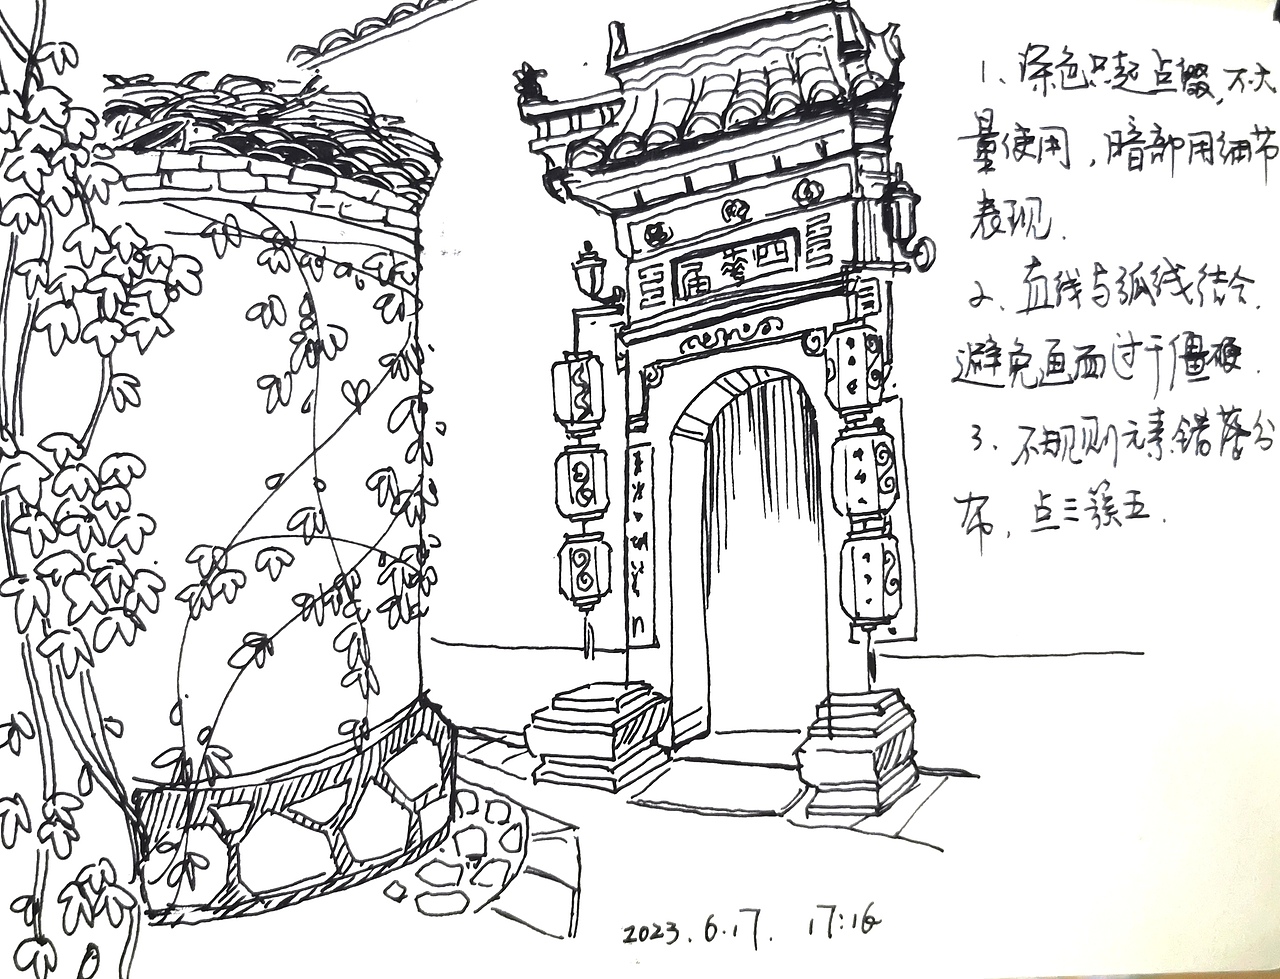 四華居
1、深色只起点缀,不大
量使用,暗部用细节
表现.
2、直线与弧线结合.
避免画面过于僵硬.
3、不规则元素错落分
布,点三簇五.
2023.6.17. 17:16